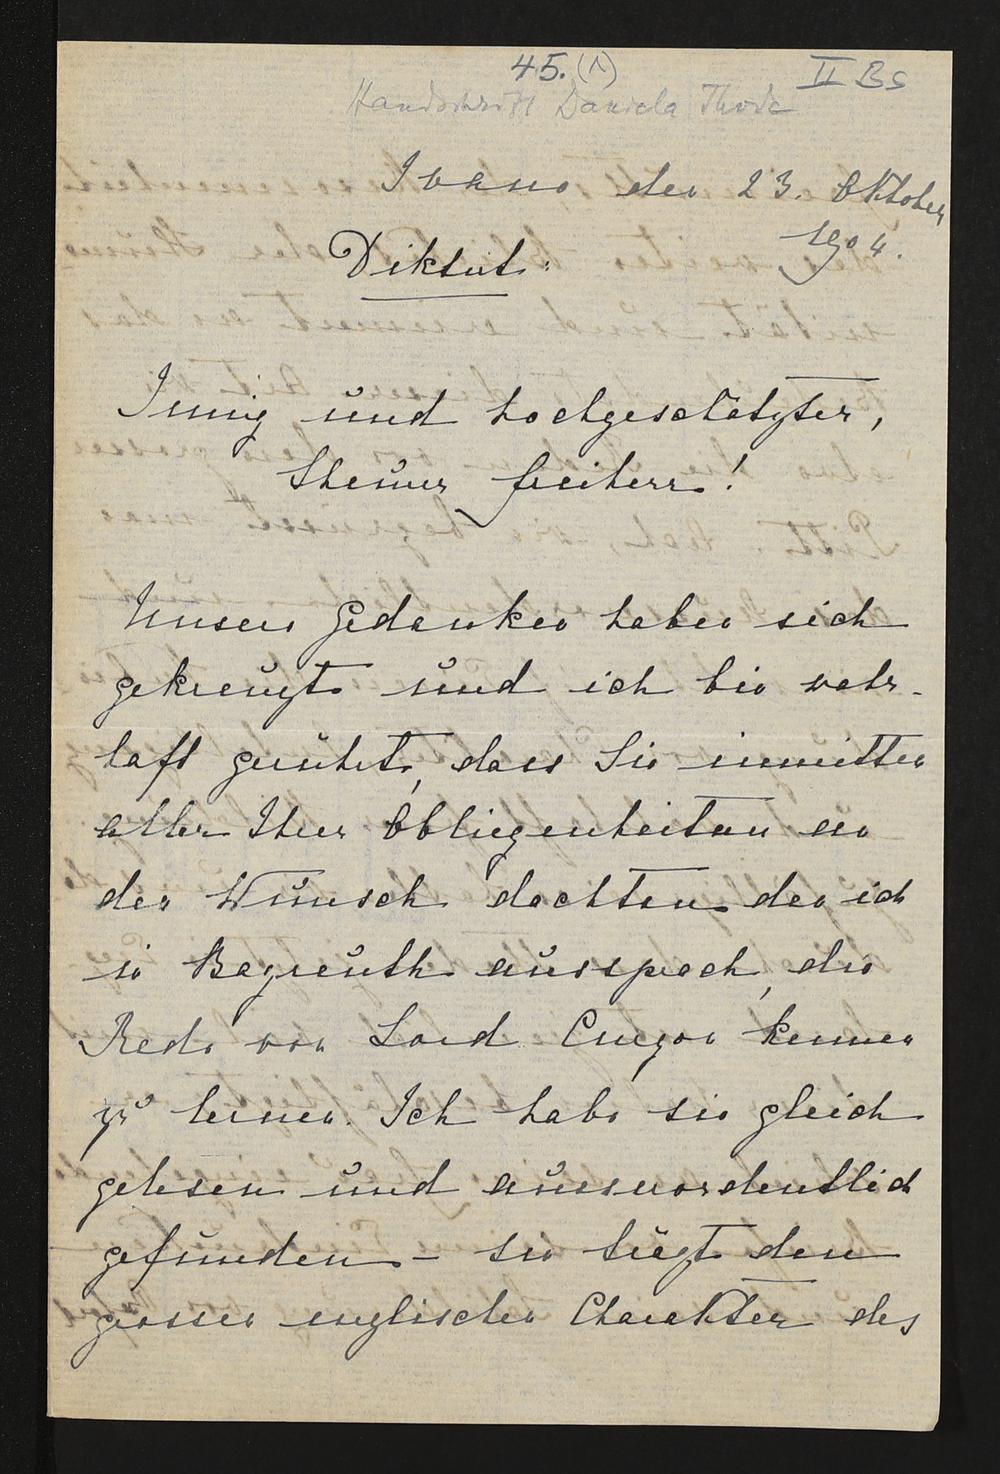 45. (1) II Bs
Handschrift Daniela Thode
Ivano den 23. Oktober
1904.
Diktat:
Innig und hochgeschätzter,
theurer Freiherr!
Unsere Gedanken haben sich
gekreuzt und ich bin wahr-
haft gerührt, dass Sie inmitten
aller Ihrer Obliegenheiten an
den Wunsch dachten den ich
in Bayreuth aussprach, die
Rede von Lord Curzon kennen
zu lernen. Ich habe sie gleich
gelesen und ausserordentlich
gefunden – sie trägt den
grossen englischen Charakter des